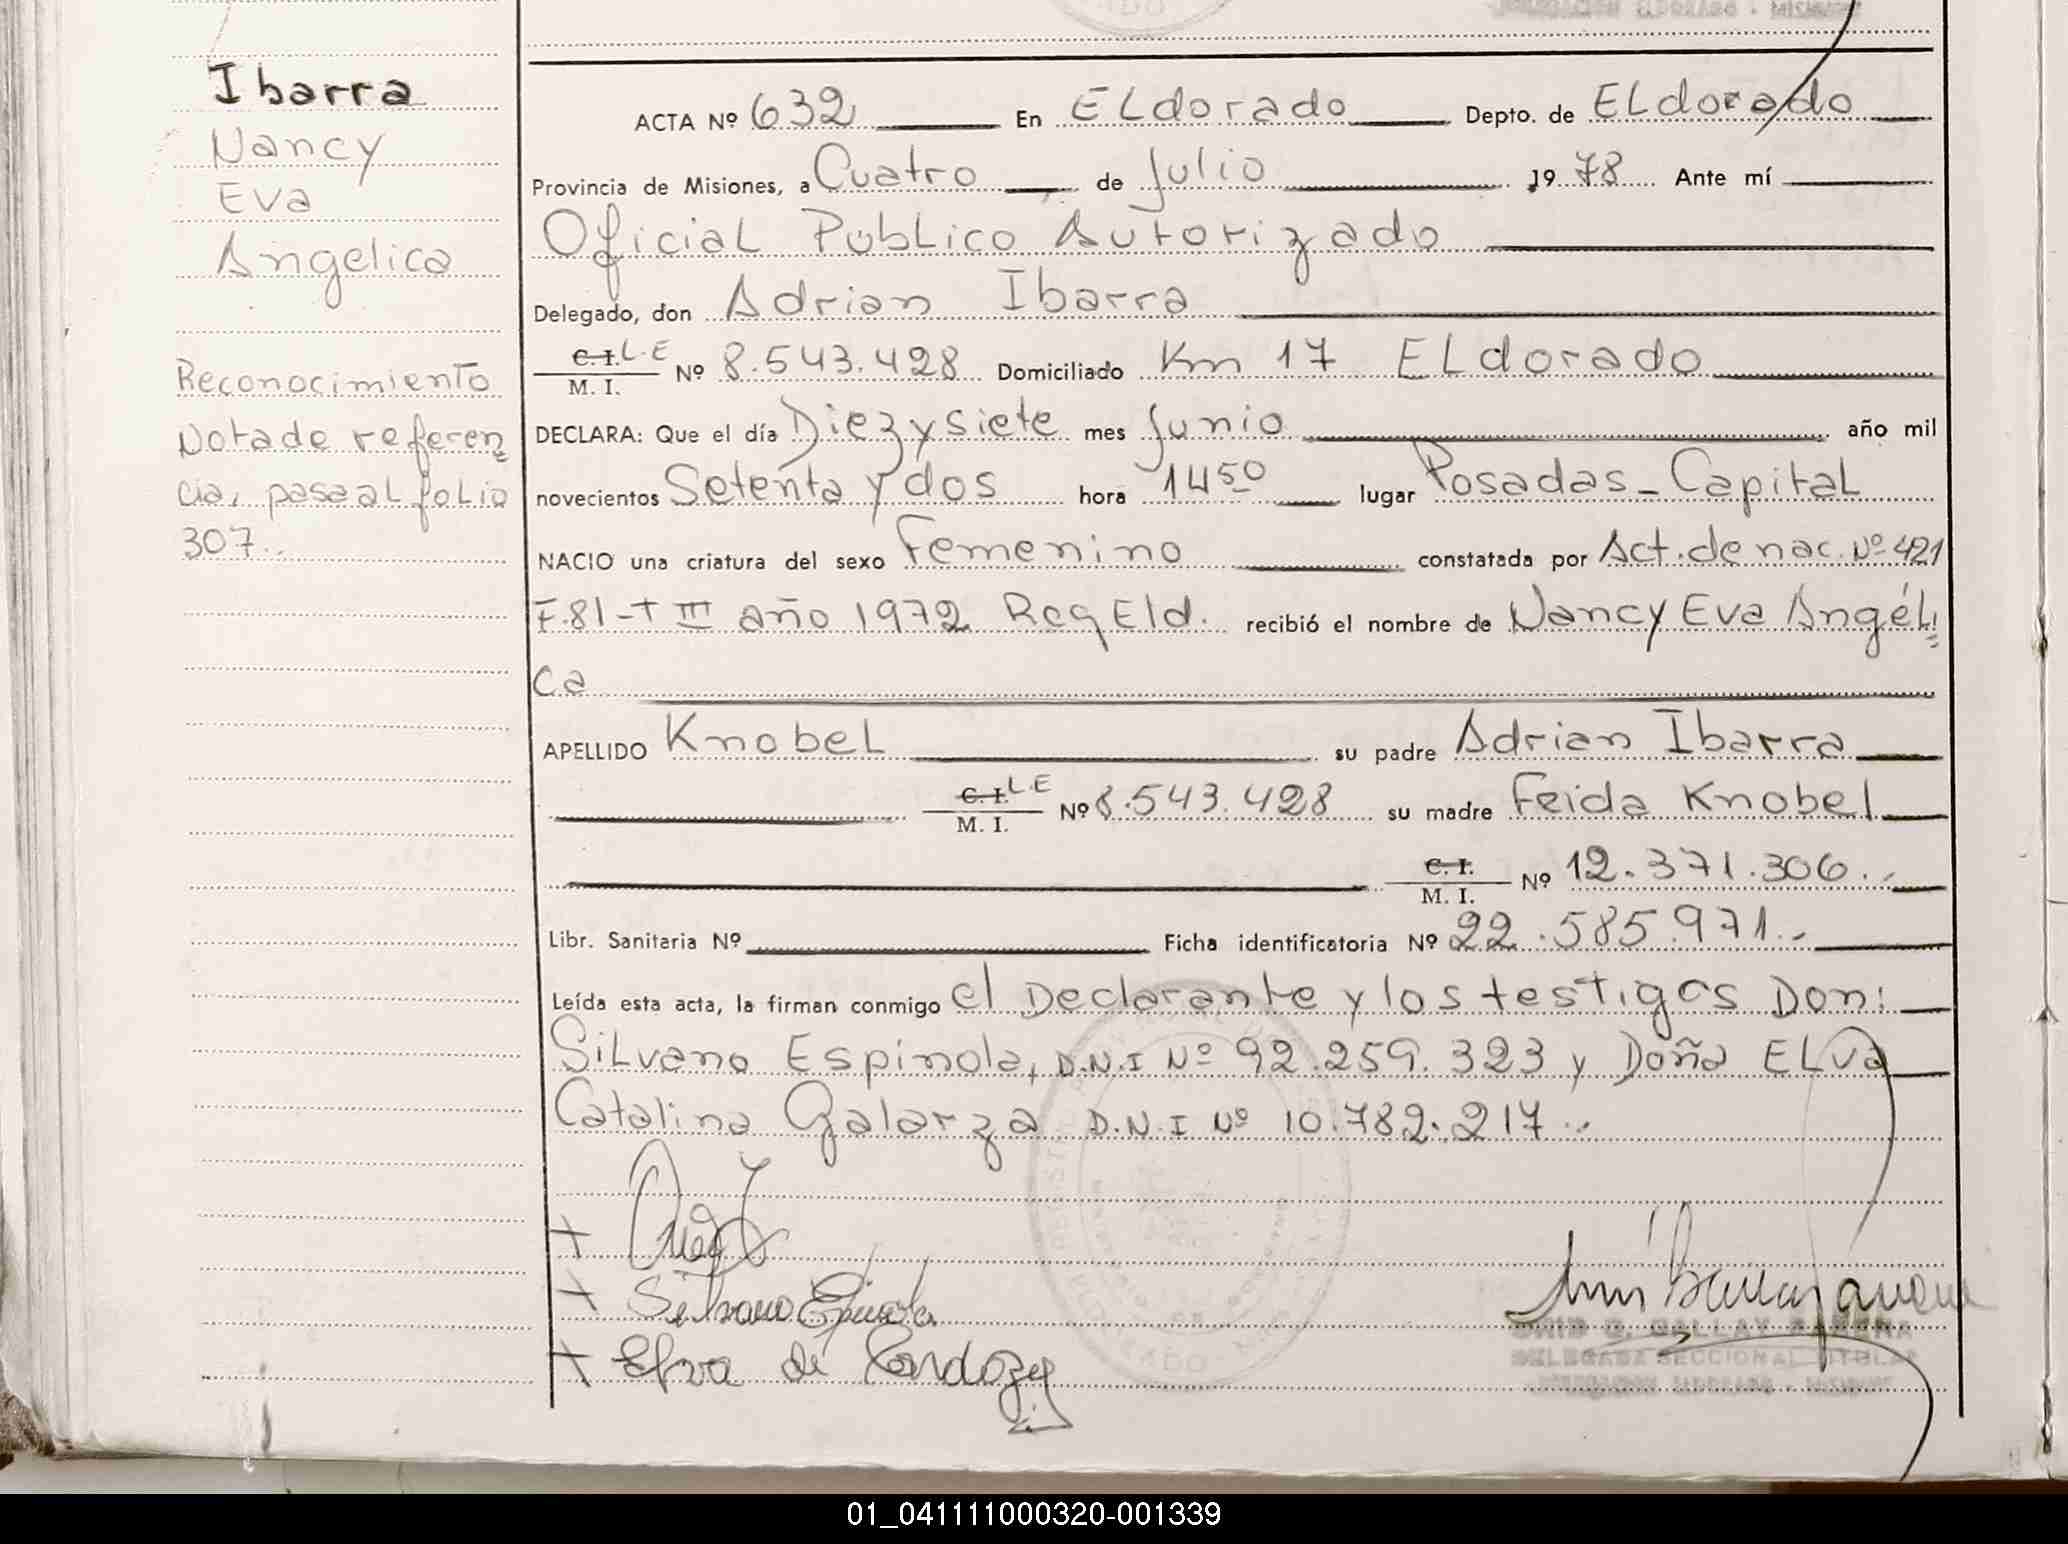 Ibarra
Nancy
Eva
Angelica
Reconocimiento
Nota de referen
cia, pasa al folio
307..
ACTA Nº 632 En ELdorado Depto. de ELdorado
Provincia de Misiones, a Cuatro de Julio 1978 Ante mí
Oficial Público Autorizado
Delegado, don Adrian Ibarra
C. I. L.E
M. I. Nº 8.543.428 Domiciliado Km 17 ELdorado
DECLARA: Que el día Diez y siete mes Junio año mil
novecientos Setenta y dos hora 14 50 lugar Posadas - Capital
NACIO una criatura del sexo Femenino constatada por Act. de nac. Nº 421
F. 81 - T III año 1972 Reg Eld. recibió el nombre de Nancy Eva Angéli
ca
APELLIDO Knobel su padre Adrian Ibarra
C. I. L.E
M. I. Nº 8.543.428 su madre Feida Knobel
C. I.
M. I. Nº 12.371.306..
Libr. Sanitaria Nº Ficha identificatoria Nº 22.585.971..
Leída esta acta, la firman conmigo el Declarante y los testigos Don:
Silvano Espinola, D.N.I Nº 92.259.323 y Doña ELva
Catalina Galarza D.N.I Nº 10.782.217..
Silvano Espinola
Elva de Cardozo
G. GALLAY
DELEGADA SECCIONAL TITULAR
DELEGACION ELDORADO - MISIONES
01_041111000320-001339